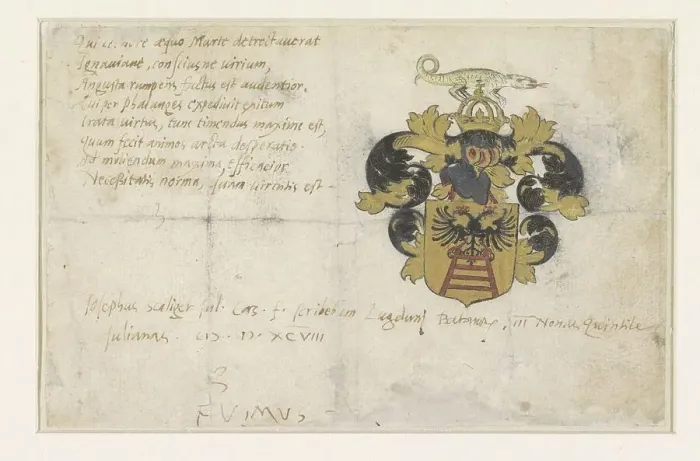 æquo Marte detrectaverat
Ignaviane, consciusne virium,
Angusta rumpens factus est audentior.
Cui per phalanges expedivit exitum
Irata virtus, tunc timendus maxime est,
Quum fecit animos desperatio.
Ad maxima, efficacior
Necessitatis norma, quam virentis est.
Iosephus Scaliger Iul. Cæs. f. scribebam Lugduni Batavor, III Nonas Quintileis
Iulianas. CIↃ. IↃ. XCVIII
FVIMVS